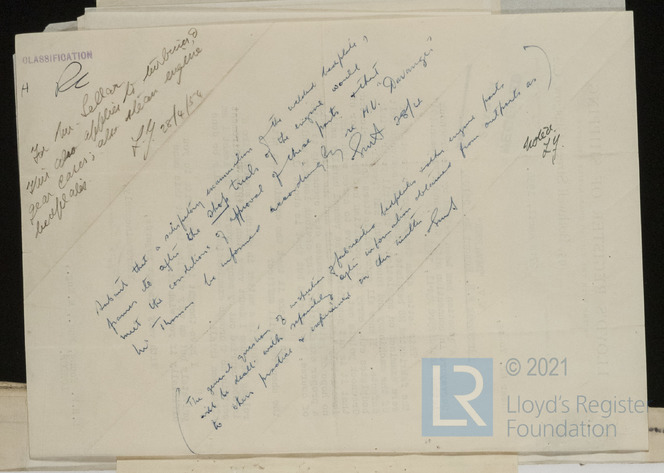 CLASSIFICATION
H
Re
For Mr. Sellar
This also applies to turbines,
gear cases & also steam engine
bedplates
LY 28/4/54
Submit that a satisfactory examination of the welded bedplate &
frames to after the shop trials of the engine would
meet the conditions of approval of these parts & that
Mr Thomas be informed accordingly re M.V. Davanger
28/4
The general question of inspection of fabricated bedplates under engine parts
will be dealt with separately after information obtained from outports as
to their practice & experience in this matter
Noted
LY
LR
© 2021
Lloyd's Register
Foundation